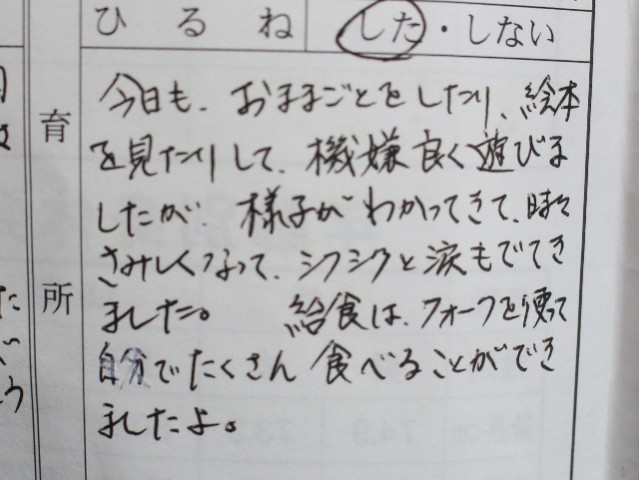 ひるね した・しない
今日も、おままごとをしたり、絵本
を見たりして、機嫌良く遊びま
したが、様子がわかってきて、時々
さみしくなって、シクシクと涙もでてき
ました。 給食は、フォークを使って
自分でたくさん食べることができ
ましたよ。
育
所